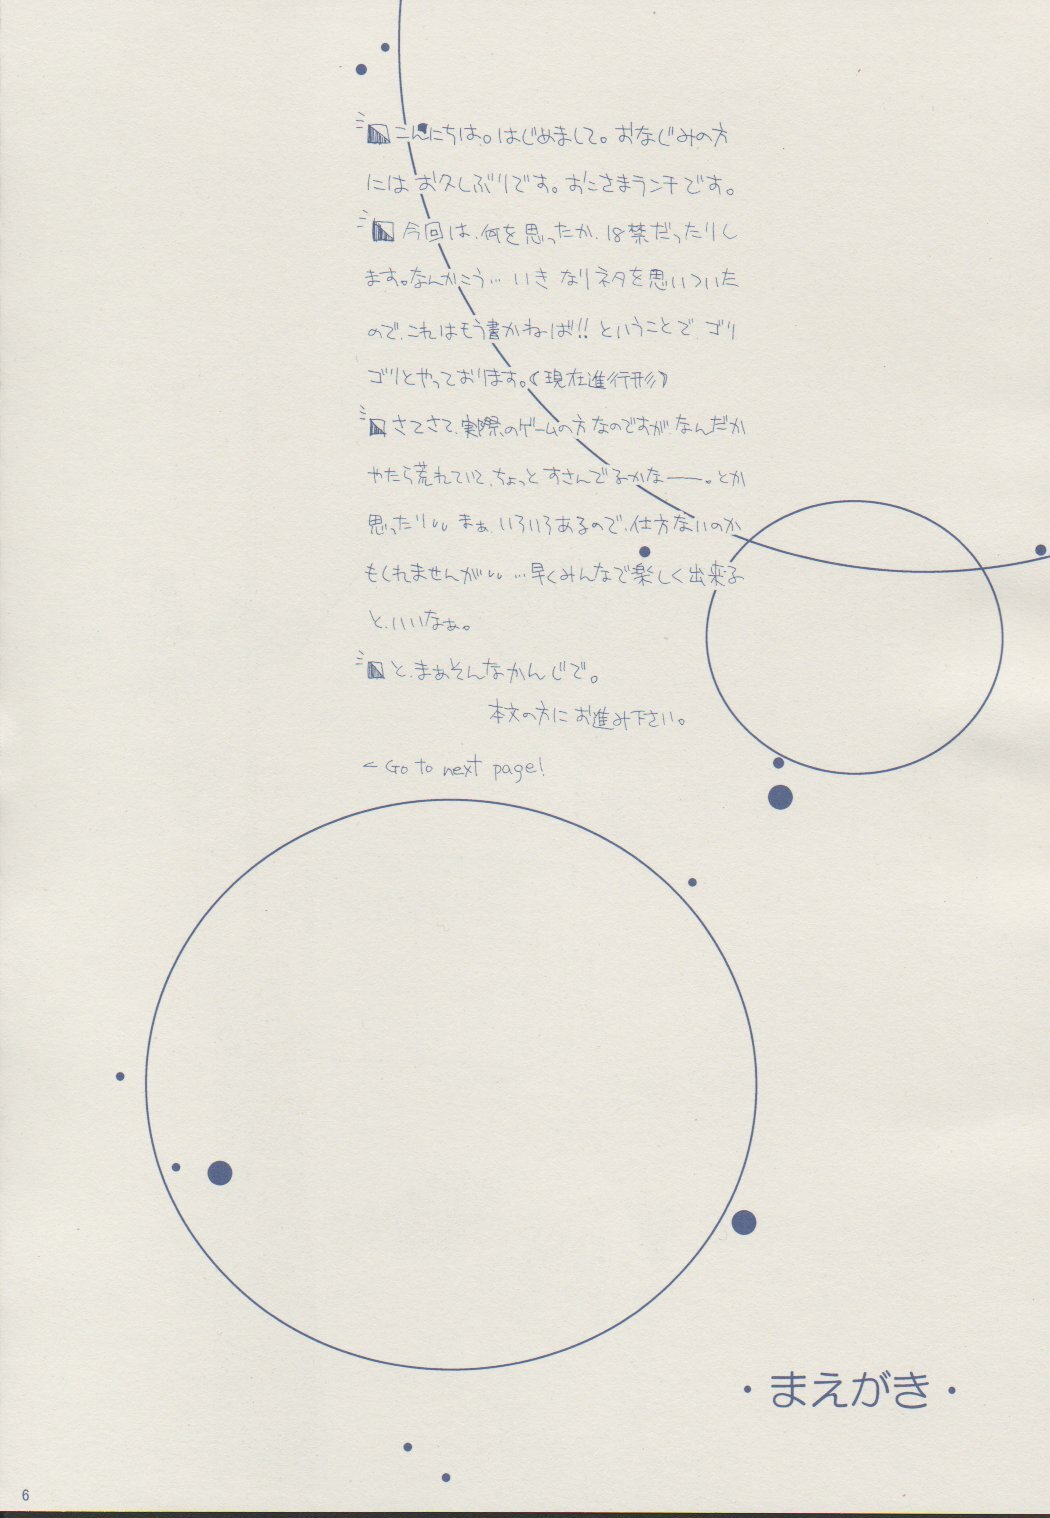 こんにちは。はじめまして。おなじみの方
にはお久しぶりです。おこさまランチです。
今回は、何を思ったか、18禁だったりし
ます。なんかこう… いきなりネタを思いついた
ので、これはもう書かねば!! ということで、ゴリ
ゴリとやっております。(現在進行形)
さてさて、実際のゲームの方なのですが、なんだか
やたら荒れていて、ちょっとすさんでるかなー。とか
思ったり。まぁ、いろいろあるので、仕方ないのか
もしれませんが…早くみんなで楽しく出来る
と、いいなぁ。
と、まぁそんなかんじで。
本文の方にお進み下さい。
< Go to next page!
・まえがき・
6